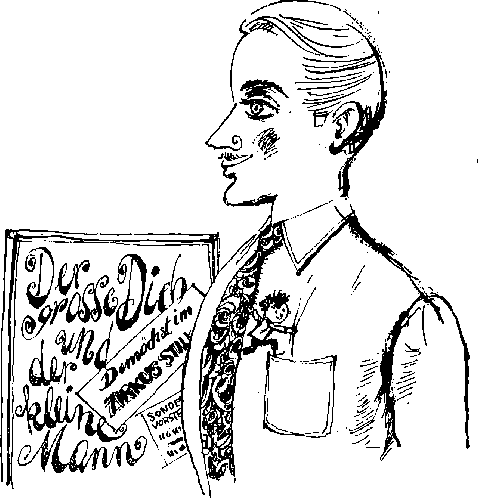 Der
grosse Dich
und
der
kleine
Mann
Demnächst im
ZIRKUS STILL
SONDE
VORSTE